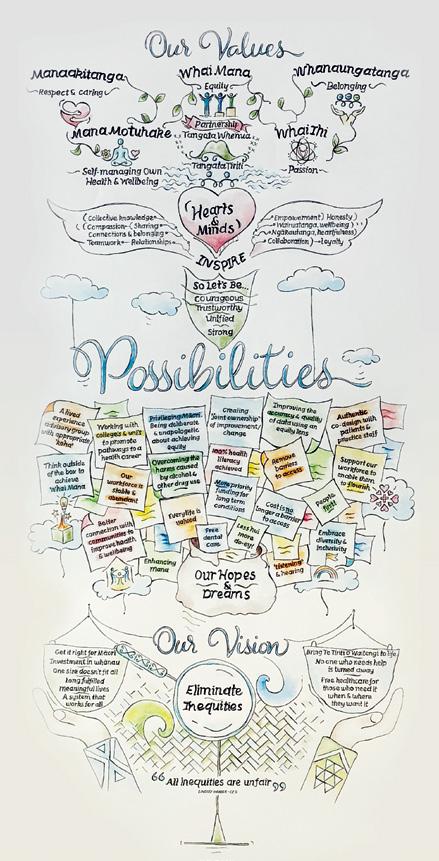 Our Values
Manaakitanga
Respect & caring
Whai Mana
Equity
Whanaungatanga
Belonging
Partnership
Tangata Whenua
Tangata Tiriti
Mana Motuhake
Self-managing Own
Health & Wellbeing
WhaiIhi
Passion
Hearts
&
Minds
Collective knowledge
Compassion Sharing
Connections & belonging
Teamwork Relationships
Empowerment Honesty
Wairuatanga, wellbeing
Ngākautanga, heartfulness
Collaboration Loyalty
INSPIRE
So Let's Be...
Courageous
Trustworthy
Unified
Strong
Possibilities
A lived
experience
advisory group
with appropriate
'koha'
Working with
colleges & unis
to promote
pathways to a
health career
Privileging Māori.
Being deliberate
& unapologetic
about achieving
equity
Creating
"joint ownership"
of improvement/
change
Improving the
accuracy & quality
of data using an
equity lens
Authentic
co-design with
patients &
practice staff
Think outside
of the box to
achieve
Whai Mana
Our
workforce is
stable &
abundant
Overcoming the
harms caused
by alcohol &
other drug use
100% health
literacy
achieved
More priority
funding for
long term
conditions
Remove
barriers
to access
Support our
workforce to
enable them
to flourish
Better
connection with
communities to
improve health
& wellbeing
Everyone is
valued
Cost is no
longer a barrier
to access
People
first
Free
dental
care
Less hui
more
do-ey!
Embrace
diversity &
inclusivity
Enhancing
mana
"Listening"
& hearing
Our Hopes
&
Dreams
Our Vision
Get it right for Māori
Investment in whānau
One size doesn't fit all
Long fulfilled
meaningful lives
A system that
works for all
Eliminate
Inequities
Bring Te Tiriti o Waitangi to life
No one who needs help
is turned away
Free healthcare for
those who need it
when & where
they want it
"All inequities are unfair"